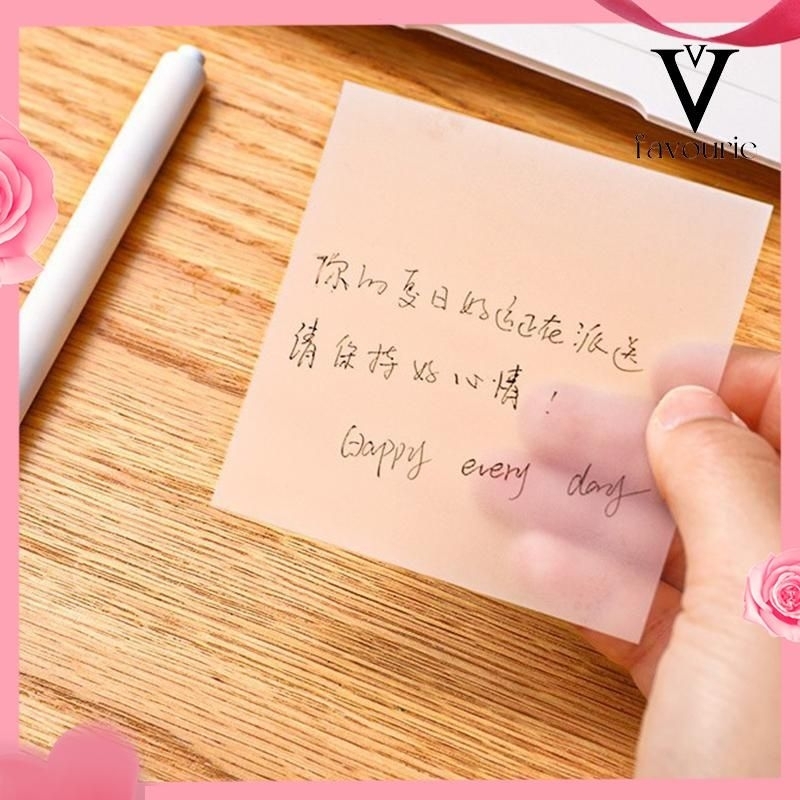 V
favourie
你的夏日好运正在派送
请保持好心情!
Happy every day